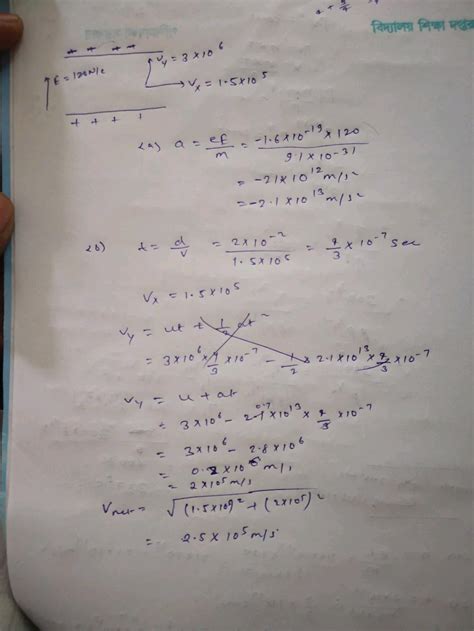 বিদ্যালয় শিক্ষা দপ্তর
+ + + +
E = 120 N/c
Vy = 3 × 10^6
Vx = 1.5 × 10^5
+ + + 1
2a) a = ef/m = -1.6×10^-19 × 120 / 9.1 × 10^-31
= -21 × 10^12 m/s^2
= -2.1 × 10^13 m/s^2
2b) t = d/v = 2×10^-2 / 1.5×10^5 = 4/3 × 10^-7 sec
Vx = 1.5 × 10^5
Vy = ut + 1/2 at^2
= 3×10^6 × 4/3 × 10^-7 - 1/2 × 2.1×10^13 × 4/3 × 10^-7
Vy = u + at
= 3×10^6 - 2.1×10^13 × 4/3 × 10^-7
0.7
= 3×10^6 - 2.8×10^6
= 0.2 × 10^6 m/s
= 2×10^5 m/s
Vnet = √(1.5×10^5)^2 + (2×10^5)^2
= 2.5×10^5 m/s